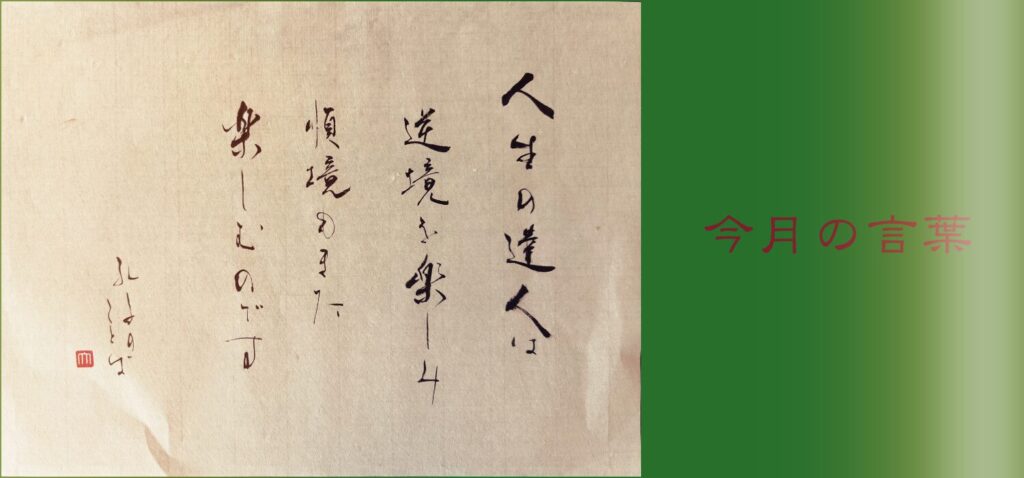 人生の達人は
逆境を楽しみ
順境もまた
楽しむのです
孔子のことば
今月の言葉